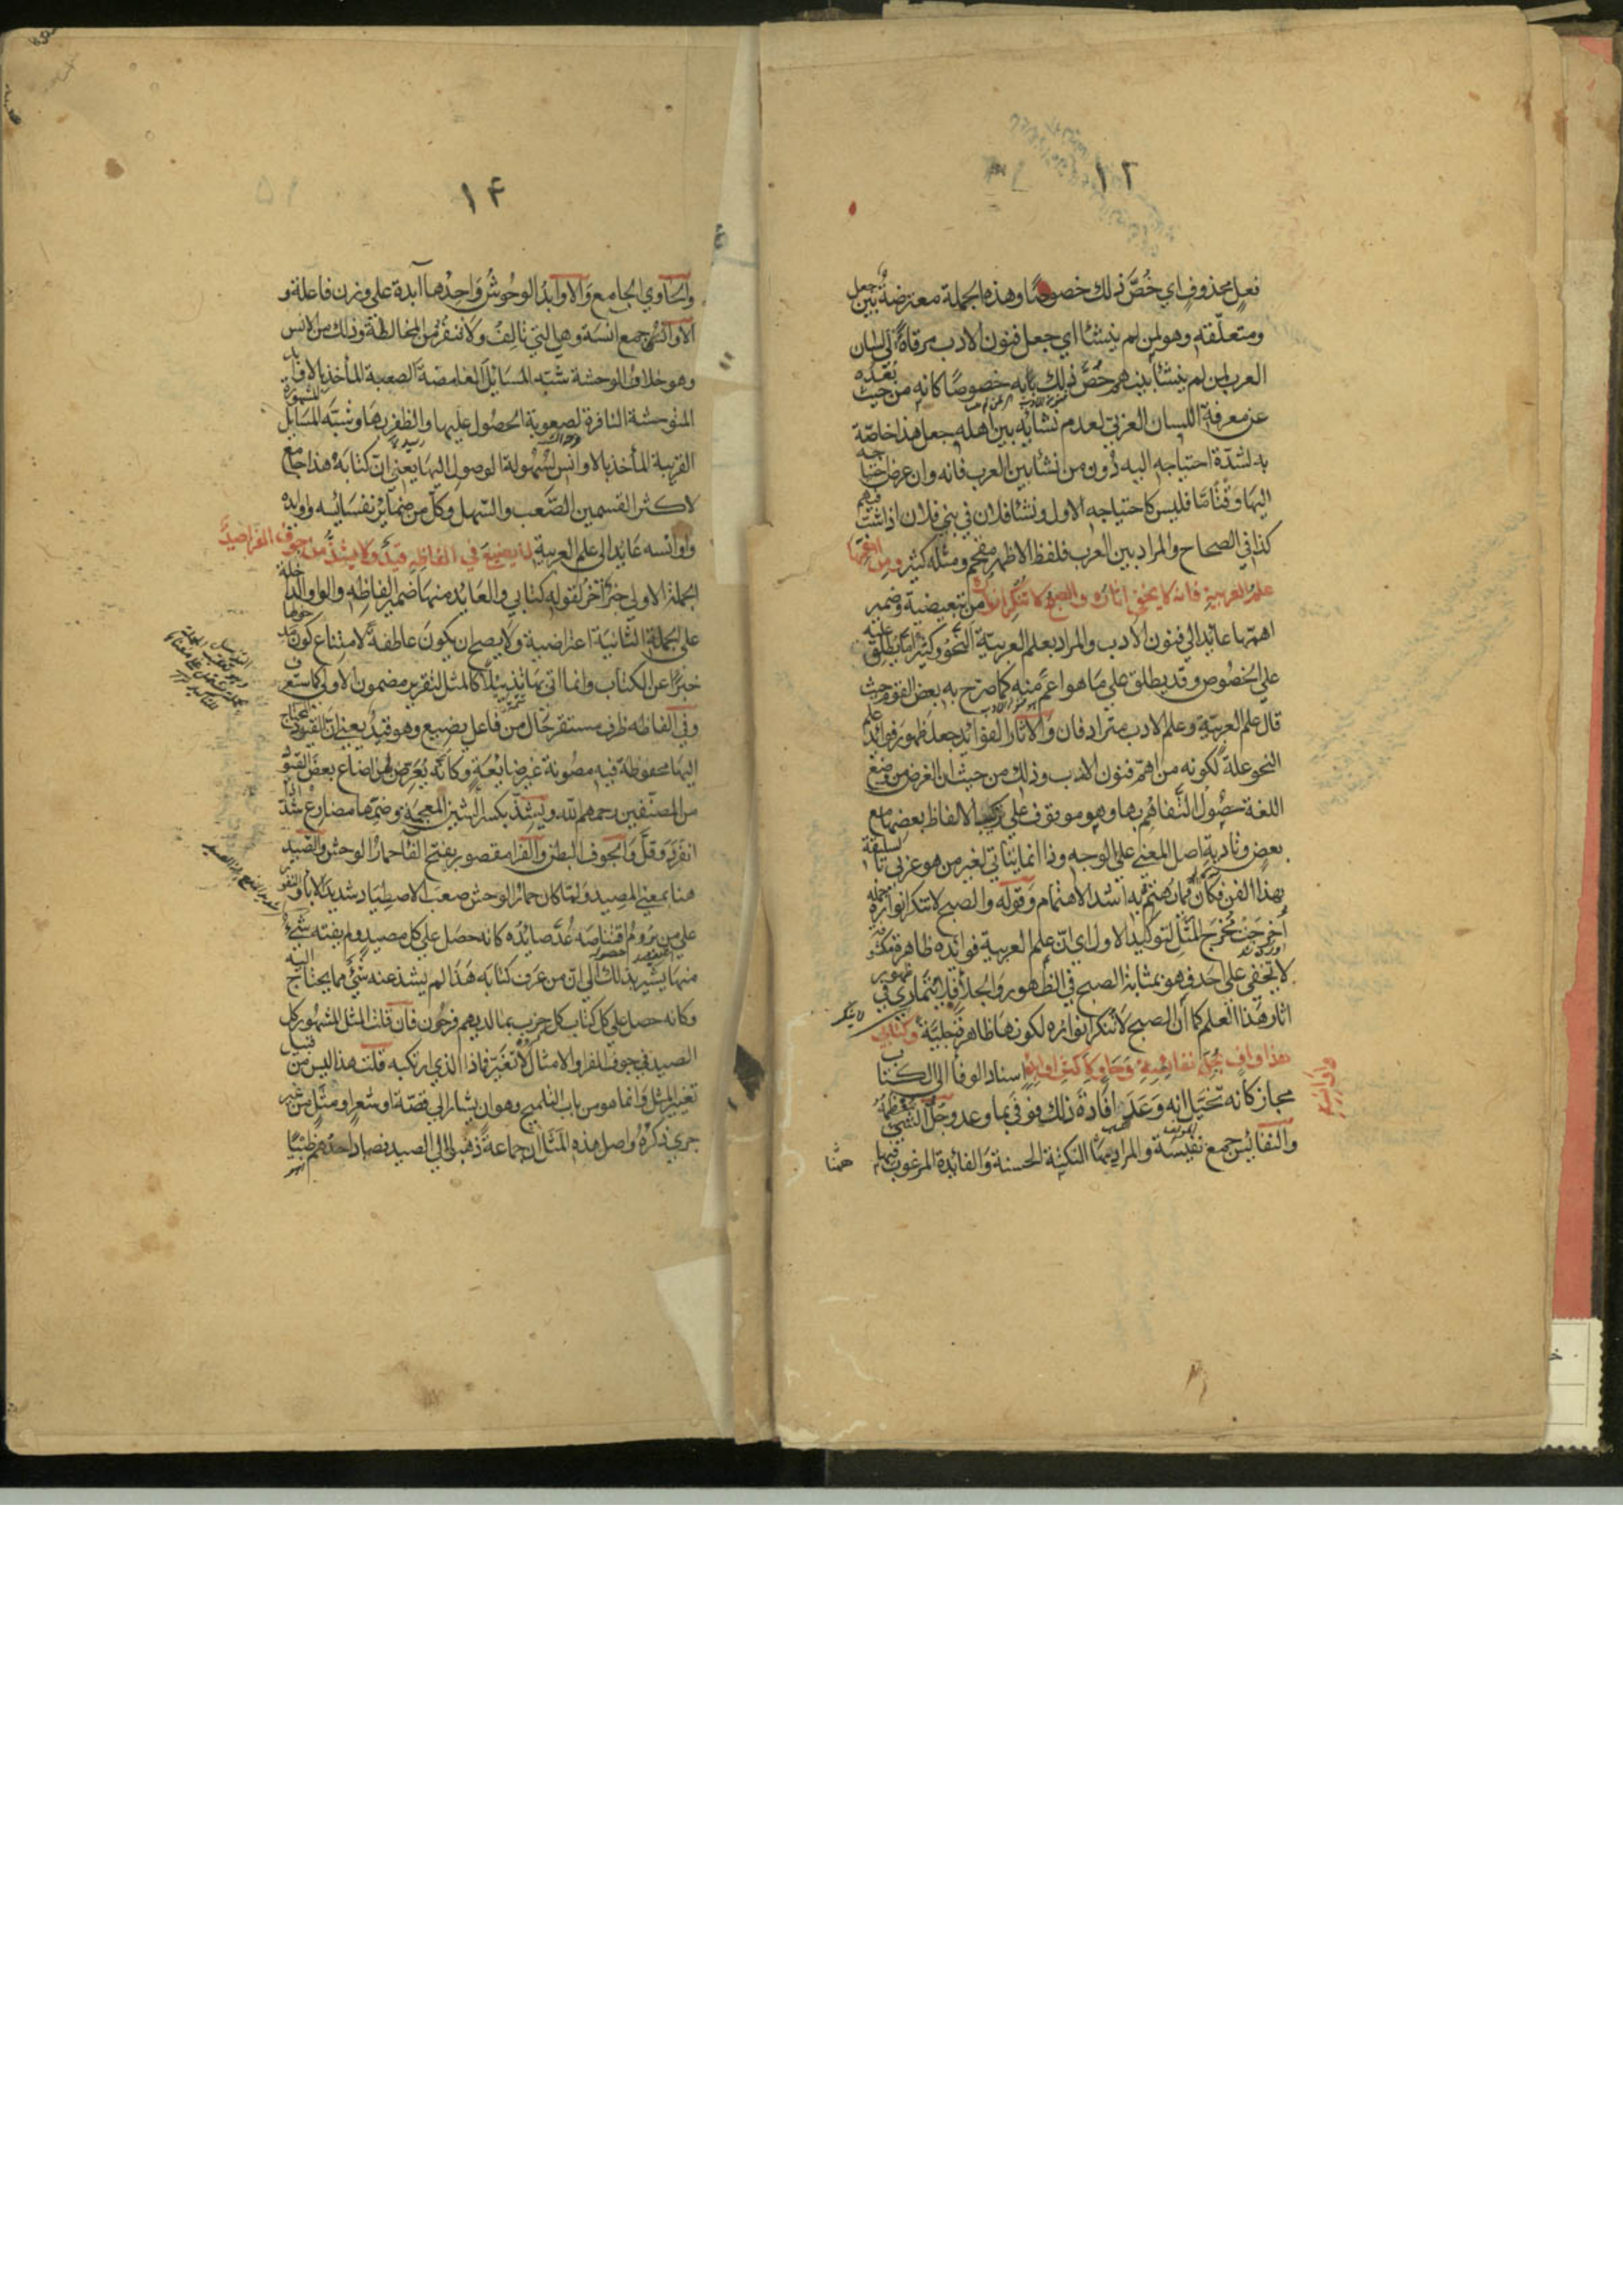 ١٢
فعل محذوف اي خُصَّ ذلك خصوصًا وهذه الجملة معترضة بين جعل
ومتعلّقه وهو لمن لم ينشئا اي جعل فنون الادب مرقاة الى لسان
العرب لمن لم ينشئا بينهم خُصَّ ذلك بابه خصوصًا كانه من حيث بعده
عن معرفة اللسان العربي لعدم نشائه بين اهله جعل هذا خاصّة
به لشدّة احتياجه اليه دون من نشا بين العرب فانه وان عرض احتياجه
اليها وقتًا مّا فليس كاحتياجه الاول ونشا فلان في بني فلان اذا شبّ فيهم
كذا في الصحاح والمراد بين العرب فلفظ الاظهر مفخم ومثله كثير ومن اهمّها
علم العربية فانه لا يخفى اثاره والصبح لا تنكر انواره من تبعيضية وضمير
اهمّها عائد الى فنون الادب والمراد بعلم العربيّة النحو وكثيرًا ما يطلق عليه
على الخصوص وقد يطلق على ما هو اعمّ منه كما صرّح به بعض القوم حيث
قال علم العربيّة وعلم الادب مترادفان والاثار الفوائد جعل ظهور فوائد علم
النحو علّة لكونه من اهمّ فنون الادب وذلك من حيث ان الغرض من وضع
اللغة حصول التفاهم بها وهو موقوف على تركيب الالفاظ بعضها مع
بعض وتادية اصل المعنى على الوجه وذا انما يتاتى لغير من هو عربي سليقة
بهذا الفن فكان مما يهتم به اشد الاهتمام وقوله والصبح لا تنكر انواره جملة
اخرجت مخرج المثل لتوكيد الاول اي انّ علم العربية فوائده ظاهرة
لا تخفى على احد فهو بمثابة الصبح في الظهور والجلا فلا يتمارى في
اثار هذا العلم كما أن الصبح لا تنكر انواره لكونها ظاهرة جلية وكتابي
هذا واف بجلّ نفائسه وحاو لاكثر اوابده اسناد الوفا الى الكتاب
مجاز كانه تخيّل انه وعد افادة ذلك فوفى بما وعد وجلّ الشي معظمه
والنفائس جمع نفيسة والمراد بها النكتة الحسنة والفائدة المرغوب فيها
١٤
وآساوي الجامع والاوابدُ الوحُوشُ واحدُها آبدة على وزن فاعلة و
الاوانس جمع انسة وهي التي تالف ولا تنفر من المخالطة وذلك من الانس
وهو خلاف الوحشة شبّه المسائل الغامضة الصعبة المأخذ بالاوابد
المتوحشة النافرة لصعوبة الحصول عليها والظفر بها وشبّه المسايل المشهورة
القريبة المأخذ بالاوانس لسهولة الوصول اليها يعني انّ كتابه هذا جامع
لاكثر القسمين الصّعب والسّهل وكل من ضمائر نفسائسه واوابده
واوانسه عايد الى علم العربية لا يضيع في الفاظه قيد ولا يشذ من جوف الفرا صيد
الجملة الاولى خبر آخر لقوله كتابي والعايد منها ضمير الفاظه والواو الداخلة
على الجملة الثانية اعتراضية ولا يصح ان يكون عاطفة لامتناع كون
خبرًا عن الكتاب وانما اتى بها تذييلًا كالمثل لتقرير مضمون الاولى
وفي الفاظه ظرف مستقر حال من فاعل يضيع وهو قيد يعني ان القيود المحتاج
اليها محفوظة فيه مصونة غير ضايعة وكانّه يُعرّض بمن اضاع بعض القيود
من المصنّفين رحمهم الله ويشذّ بكسر الشين المعجمة وضمّها مضارع شذّ اذا
انفرد وقلّ والجوف البطن والفرا مقصور بفتح الفا حمار الوحش والصّيد
هنا بمعنى المصيد ولمّا كان حمار الوحش صعب الاصطياد شديد الابا والنفور
على من يروم اقتناصه عُدّ صائده كانه حصل على كل مصيد ولم يفته شي
منها يشير بذلك الى انّ من عرف كتابه هذا لم يشذ عنه شي مما يحتاج اليه
وكانه حصل على كل كتاب كل حزب بما لديهم فرحون فان قلت المثل المشهور كل
الصيد في جوف الفرا والامثال لا تغيّر فاذا الذي ارتكبه قلت هذا ليس من قبيل
تغيير المثل وانما هو من باب التلميح وهو ان يشار الى قصّة او شعر او مثل من غير
جري ذكره واصل هذه المثال ان جماعة ذهبوا الى الصيد فصاد احدهم ظبيًا